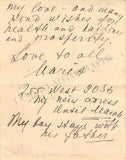 my love - and many
good wishes for
health and happiness
and prosperity
Love to all
Maria
255 West 90 St
my new address
until March
My boy stays with
his father